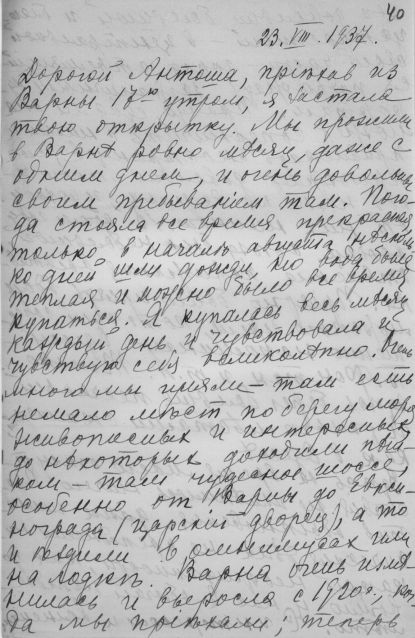 40
23. VIII. 1937.
Дорогой Антоша, пріѣхав из
Варны 17го утром, я застала
твою открытку. Мы прожили
в Варнѣ ровно мѣсяц, даже с
одним днем, и очень довольны
своим пребыванием там. Пого-
да стояла все время прекрасная
только в началѣ августа нѣсколь
ко дней шли дожди, но вода была
теплая и можно было все время
купаться. Я купалась весь мѣсяц
каждый день и чувствовала и
чувствую себя великолѣпно. Очень
много мы гуляли — там есть
немало мѣст по берегу моря
живописных и интересных
до нѣкоторых доходили пѣш-
ком — там чудесное шоссе,
особенно от Варны до Евкси-
нограда (царскій дворец), а то
и ѣздили в омнибусах или
на лодкѣ. Варна очень измѣ-
нилась и выросла с 1920г., ког
да мы пріѣхали; теперь